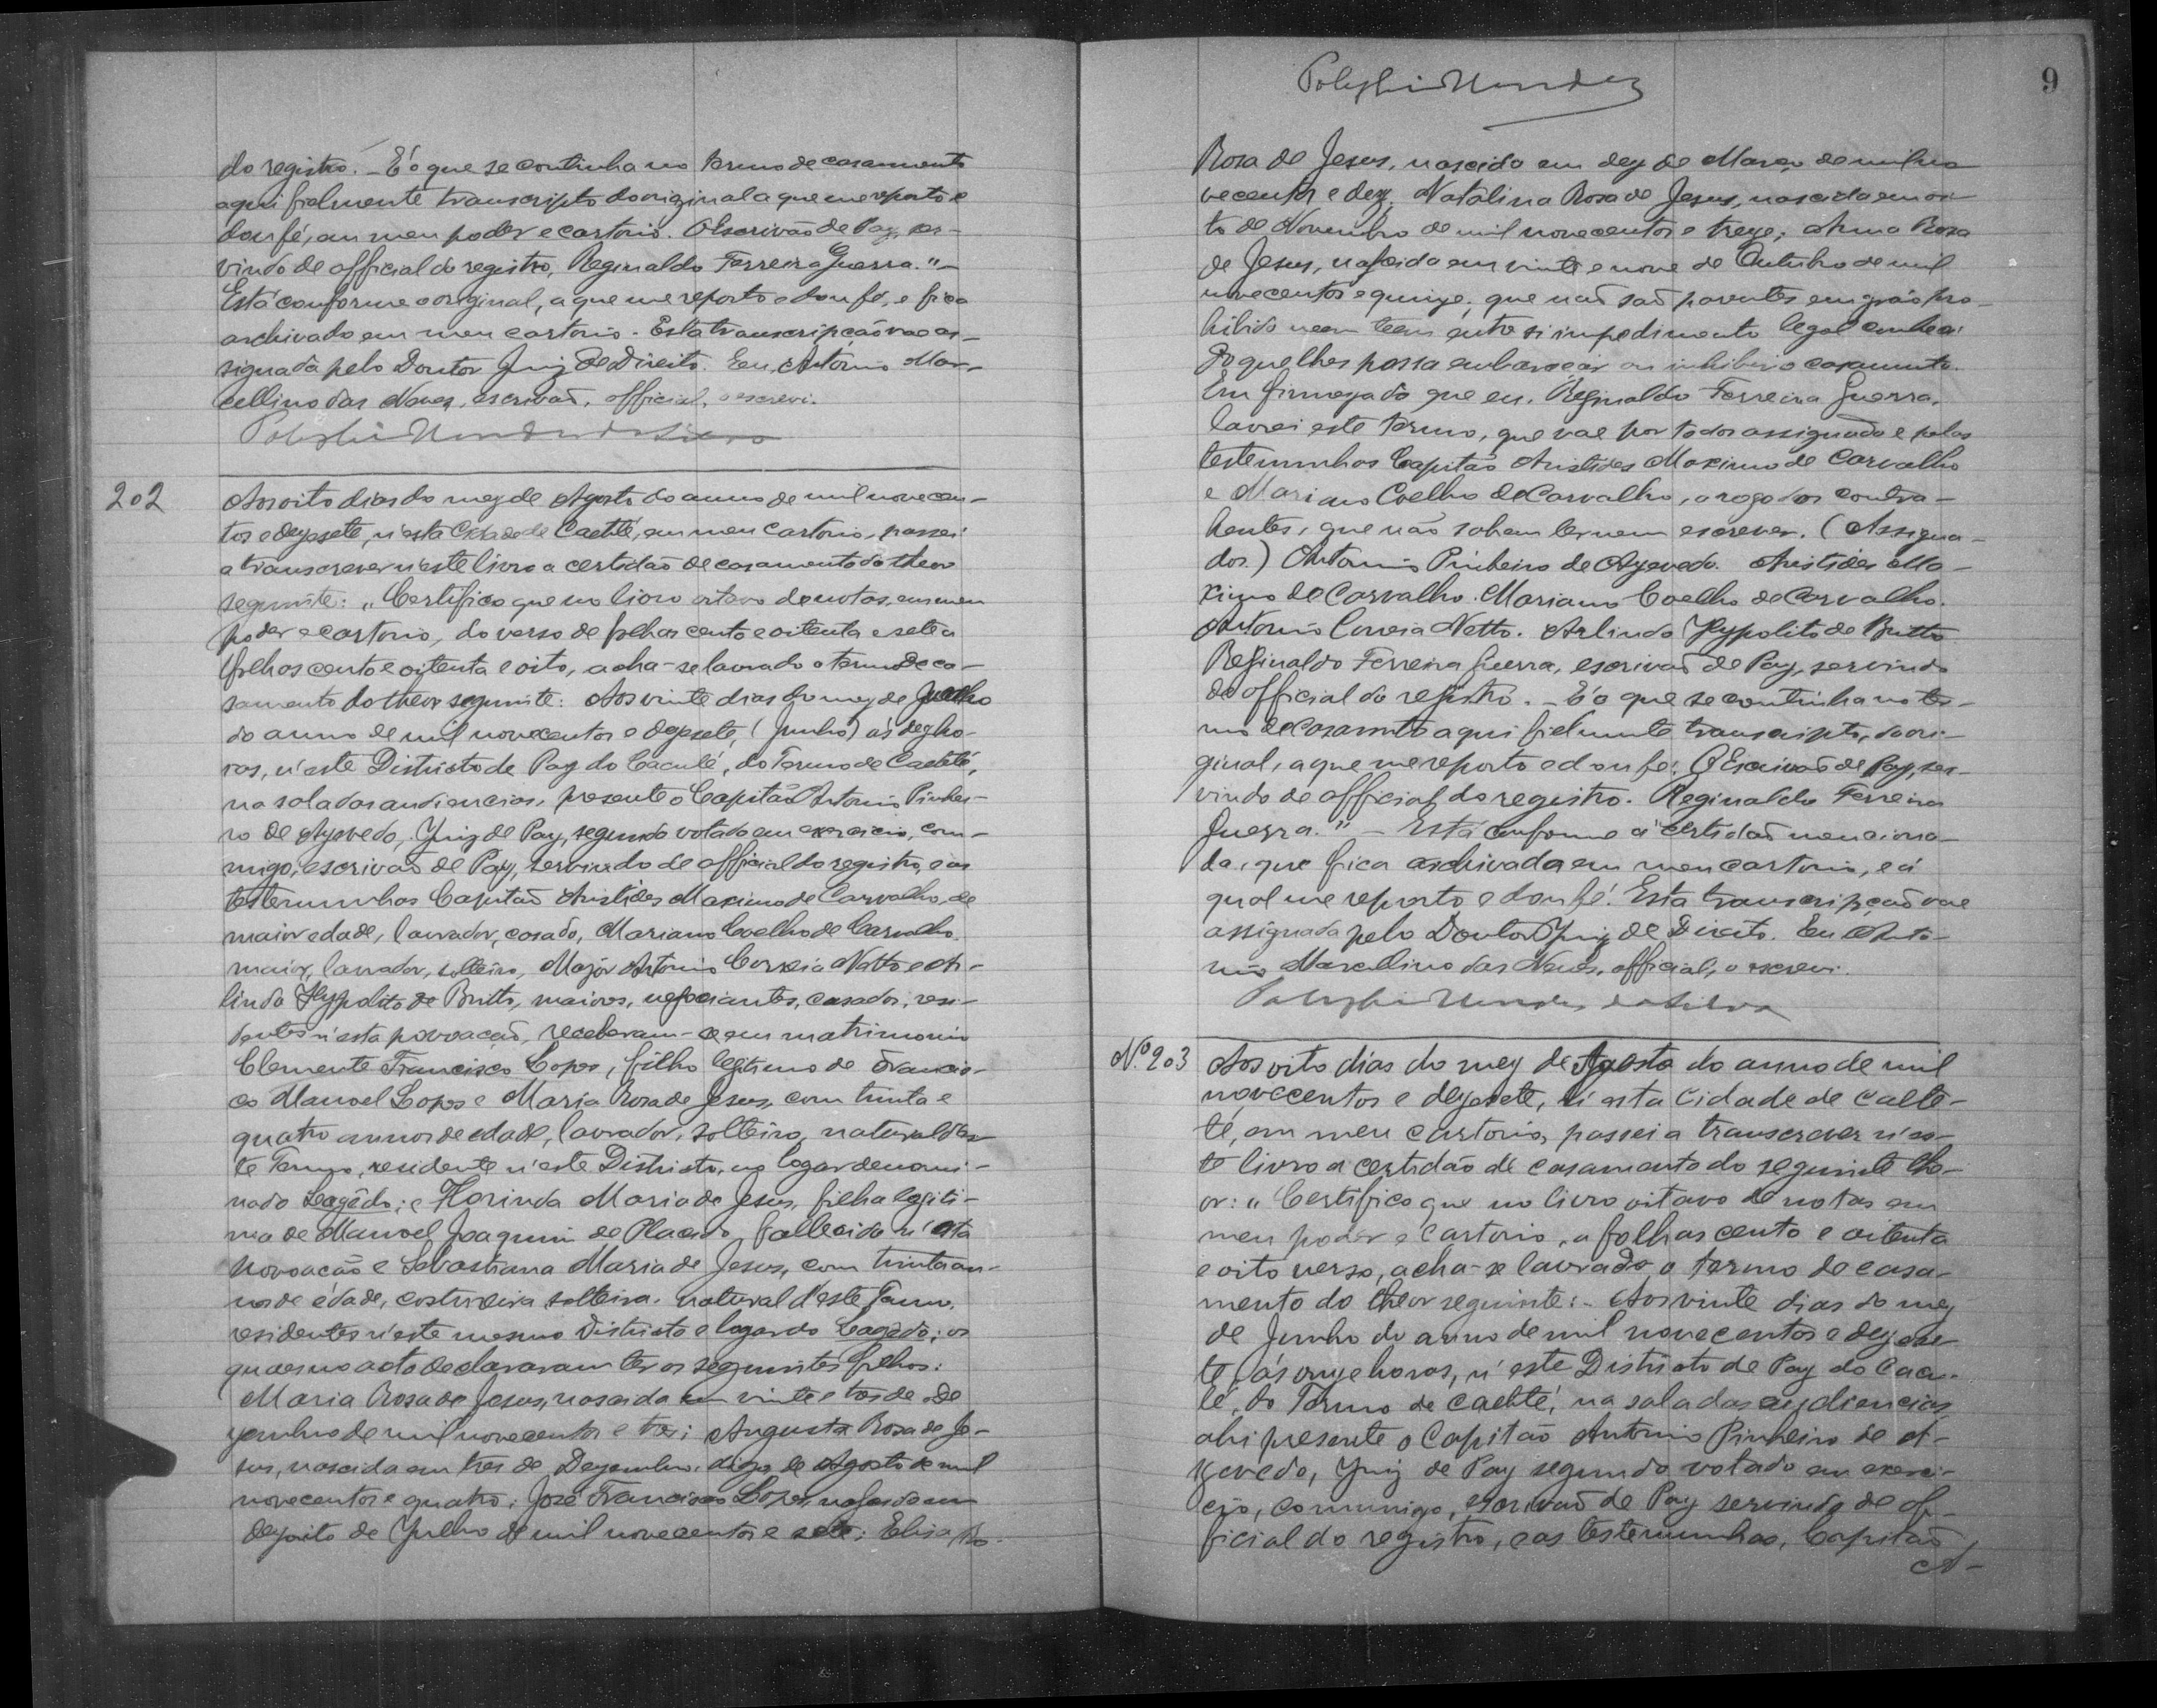 do registro. — É o que se continha no termo de casamento
aqui fielmente transcripto do original a que me reporto e
dou fé, em meu poder e cartorio. O Escrivão de Paz, ser-
vindo de official do registro, Reginaldo Ferreira Guerra." —
Está conforme o original, a que me reporto e dou fé, e fica
archivado em meu cartorio. Esta transcripção vae as-
signada pelo Doutor Juiz de Direito. Eu, Antonio Mar-
cellino das Neves, escrivão, official, o escrevi.
202
Aos oito dias do mez de Agosto do anno de mil novecen-
tos e dezesete, n'esta Cidade de Caetité, em meu cartorio, passei
a transcrever n'este livro a certidão de casamento do theor
seguinte: „Certifico que no livro oitavo de notas, em meu
poder e cartorio, do verso de folhas cento e oitenta e sete a
folhas cento e oitenta e oito, acha-se lavrado o termo de ca-
samento do theor seguinte: Aos vinte dias do mez de Julho
do anno de mil novecentos e dezesete, (Junho) ás dez ho-
ras, n'este Districto de Paz do Caculé, do Termo de Caetité,
na sala das audiencias, presente o Capitão Antonio Pinhei-
ro de Azevedo, Juiz de Paz, segundo votado em exercicio, com-
migo, escrivão de Paz, servindo de official do registro, e as
testemunhas Capitão Aristides Maximo de Carvalho, de
maior edade, lavrador, casado, Mariano Coelho de Carvalho,
maior, lavrador, solteiro, Major Antonio Correia Netto e Ar-
lindo Hypolito de Britto, maiores, negociantes, casados, resi-
dentes n'esta povoação, receberam-se em matrimonio
Clemente Francisco Lopes, filho legitimo de Francis-
co Manoel Lopes e Maria Rosa de Jesus, com trinta e
quatro annos de edade, lavrador, solteiro, natural d'es-
te Termo, residente n'este Districto, no logar denomi-
nado Lagêdo; e Florinda Maria de Jesus, filha legiti-
ma de Manoel Joaquim de Placido, fallecido n'esta
povoação e Sebastiana Maria de Jesus, com trinta an-
nos de edade, costureira, solteira, natural d'este Termo,
residentes n'este mesmo Districto e logar do Lagêdo; os
quaes no acto declararam ter os seguintes filhos:
Maria Rosa de Jesus, nascida em vinte e tres de De-
zembro de mil novecentos e tres; Augusta Rosa de Je-
sus, nascida em tres de Dezembro, digo, de Agosto de mil
novecentos e quatro; José Francisco Lopes, nascido em
dezoito de Julho de mil novecentos e sete; Elisa Ro-
9
Rosa de Jesus, nascida em dez de Março de mil no-
vecentos e dez; Natalina Rosa de Jesus, nascida em oi-
to de Novembro de mil novecentos e treze; Anna Rosa
de Jesus, nascida em vinte e nove de Outubro de mil
novecentos e quinze; que não são parentes em gráo pro-
hibido nem teem entre si impedimento legal conheci-
do que lhes possa embaraçar ou inhibir o casamento.
Em firmeza do que eu, Reginaldo Ferreira Guerra,
lavrei este termo, que vae por todos assignado e pelas
testemunhas Capitão Aristides Maximo de Carvalho
e Mariano Coelho de Carvalho, a rogo dos contra-
hentes, que não sabem ler nem escrever. (Assigna-
dos.) Antonio Pinheiro de Azevedo. Aristides Ma-
ximo de Carvalho. Mariano Coelho de Carvalho.
Antonio Correia Netto. Arlindo Hypolito de Britto
Reginaldo Ferreira Guerra, escrivão de Paz, servindo
de official do registro. — É o que se continha no ter-
mo de casamento aqui fielmente transcripto, do ori-
ginal, a que me reporto e dou fé. O Escrivão de Paz, ser-
vindo de official do registro. Reginaldo Ferreira
Guerra." — Está conforme a certidão menciona-
da, que fica archivada em meu cartorio, e á
qual me reporto e dou fé. Esta transcripção vae
assignada pelo Doutor Juiz de Direito. Eu, Anto-
nio Marcellino das Neves, official, o escrevi.
Nº 203
Aos oito dias do mez de Agosto do anno de mil
novecentos e dezesete, n'esta Cidade de Caeti-
té, em meu cartorio, passei a transcrever n'es-
te livro a certidão de casamento do seguinte the-
or: „Certifico que no livro oitavo de notas em
meu poder e cartorio, a folhas cento e oitenta
e oito verso, acha-se lavrado o termo de casa-
mento do theor seguinte: — Aos vinte dias do mez
de Junho do anno de mil novecentos e dezese-
te, ás onze horas, n'este Districto de Paz do Cacu-
lé, do Termo de Caetité, na sala das audiencias,
ahi presente o Capitão Antonio Pinheiro de A-
zevedo, Juiz de Paz segundo votado em exerci-
cio, commigo, escrivão de Paz servindo de of-
ficial do registro, e as testemunhas, Capitão
A-